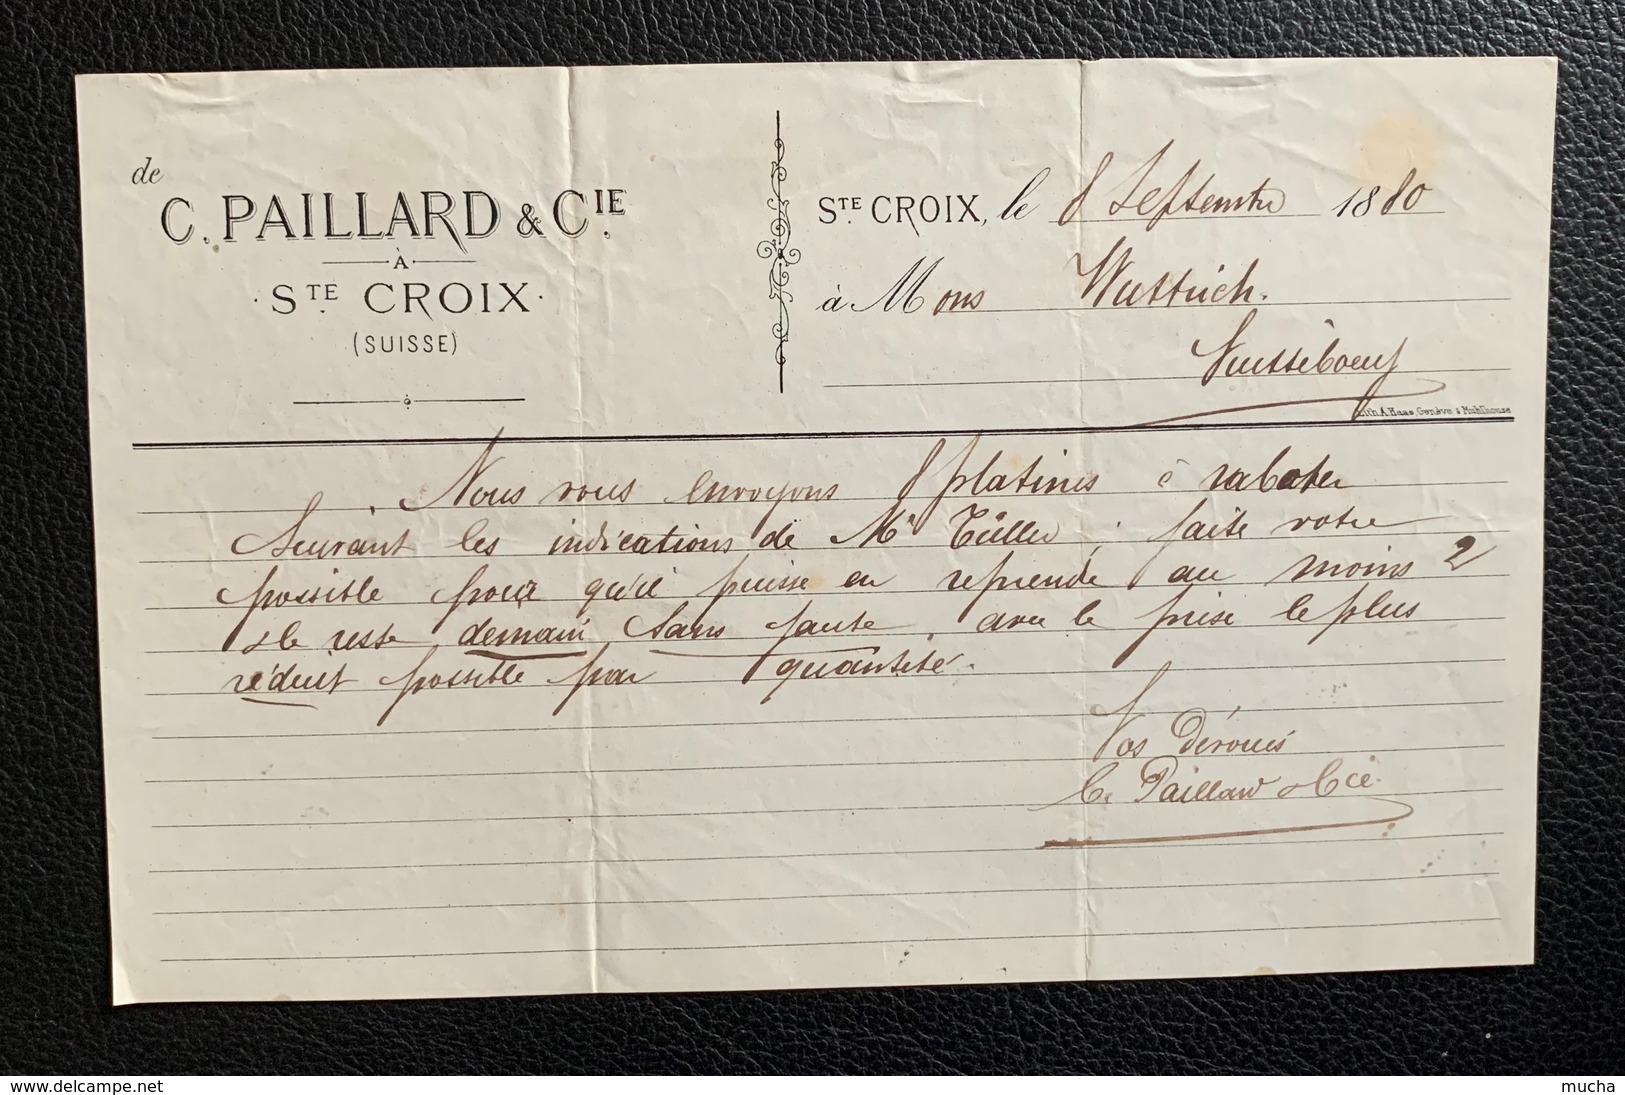 de
C. PAILLARD & CIE.
À
STE CROIX
(SUISSE)
STE CROIX, le 8 Septembre 1880
à Mons Wuttrich.
Vuittebœuf
Lith. A. Haas, Genève & Mulhouse
Nous vous envoyons 8 platines à raboter
Suivant les indications de Mr ; faite votre
possible pour qu'il puisse en reprende au moins 2
& le reste demain Sans faute, avec le prise le plus
réduit possible par quantité.
Vos Dévoués
C. Paillard & Cie.
delcampe.net
mucha